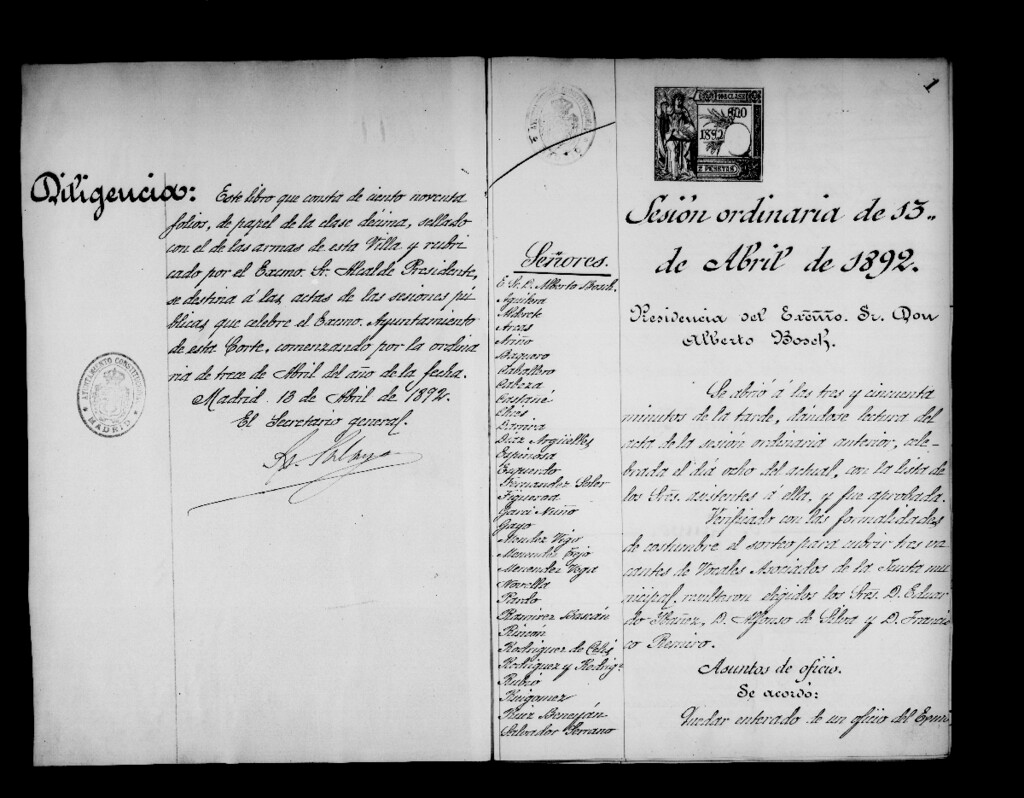 Diligencia:
Este libro que consta de ciento noventa
folios, de papel de la clase décima, sellado
con el de las armas de esta Villa y rubri
cado por el Excmo. Sr. Alcalde Presidente,
se destina á las actas de las sesiones pú
blicas, que celebre el Excmo. Ayuntamiento
de esta Corte, comenzando por la ordina
ria de trece de Abril del año de la fecha.
Madrid 13 de Abril de 1892.
El Secretario general.
AYUNTAMIENTO CONSTITUCIONAL
MADRID
Señores.
E. Sr. D. Alberto Bosch.
Aguilera
Alderete
Arcas
Ariño
Baquero
Caballero
Cabeza
Castañé
Chies
Díaz Argüelles
Espinosa
Fernandez Soler
Figueroa
Garci Nuño
Gayo
Mendez Vigo
Menendez Vega
Novella
Pardo
Ramirez Bascán
Rincón
Rodriguez de Celis
Rodriguez y Rodrigz
Rubio
Ruigomez
Ruiz Beneyán
Salvador Serrano
1
1892
PESETAS
Sesión ordinaria de 13..
de Abril de 1892.
Presidencia del Excmo. Sr. Don
Alberto Bosch.
Se abrió á las tres y cincuenta
minutos de la tarde, dándose lectura del
acta de la sesión ordinaria anterior, cele
brada el día ocho del actual, con la lista de
los Sres. asistentes á ella, y fue aprobada.
Verificado con las formalidades
de costumbre el sorteo para cubrir tres va
cantes de Vocales Asociados de la Junta mu
nicipal, resultaron elegidos los Sres. D. Eduar
do Ibañez, D. Alfonso de Silva y D. Francis
co Remiro.
Asuntos de oficio.
Se acordó:
Quedar enterado de un oficio del Excmo